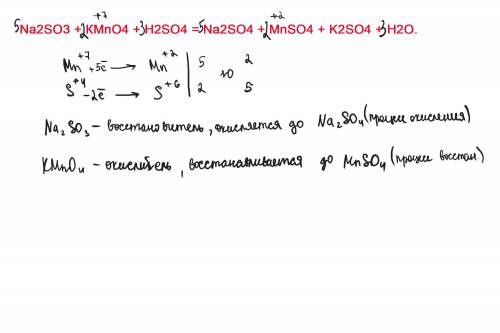 +7 +2
5Na2SO3 +2KMnO4 +3H2SO4 =5Na2SO4 +2MnSO4 + K2SO4 +3H2O.
Mn+7 +5e̅ → Mn+2 | 5 | 10 | 2
S+4 -2e̅ → S+6 | 2 | 5
Na2SO3 - восстановитель, окисляется до Na2SO4 (процесс окисления)
KMnO4 - окислитель, восстанавливается до MnSO4 (процесс восстан.)